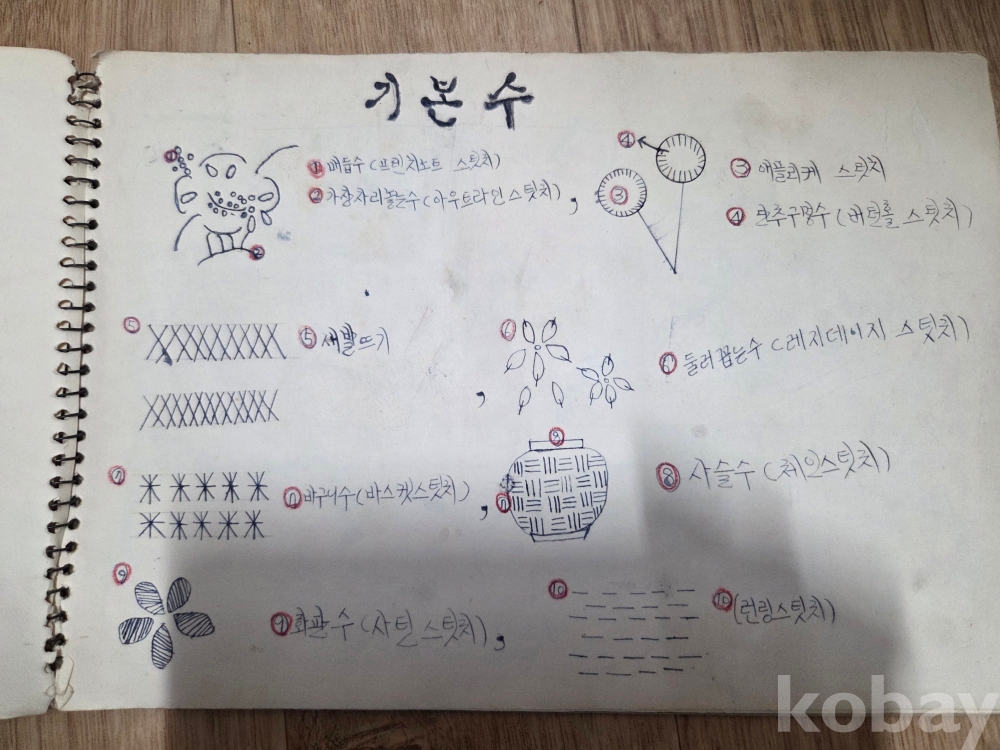 기본수
① 매듭수(프렌치노트 스팃치)
② 가장자리놓는수(아우트라인스팃치),
③ 애플리케 스팃치
④ 단추구멍수(버턴홀스팃치)
⑤ 새발뜨기,
⑥ 둘러꼽는수(레지데이지 스팃치)
⑦ 바구니수(바스켓스팃치),
⑧ 사슬수(체인스팃치)
⑨ 화판수(사틴스팃치),
⑩ (런링스팃치)
kobay